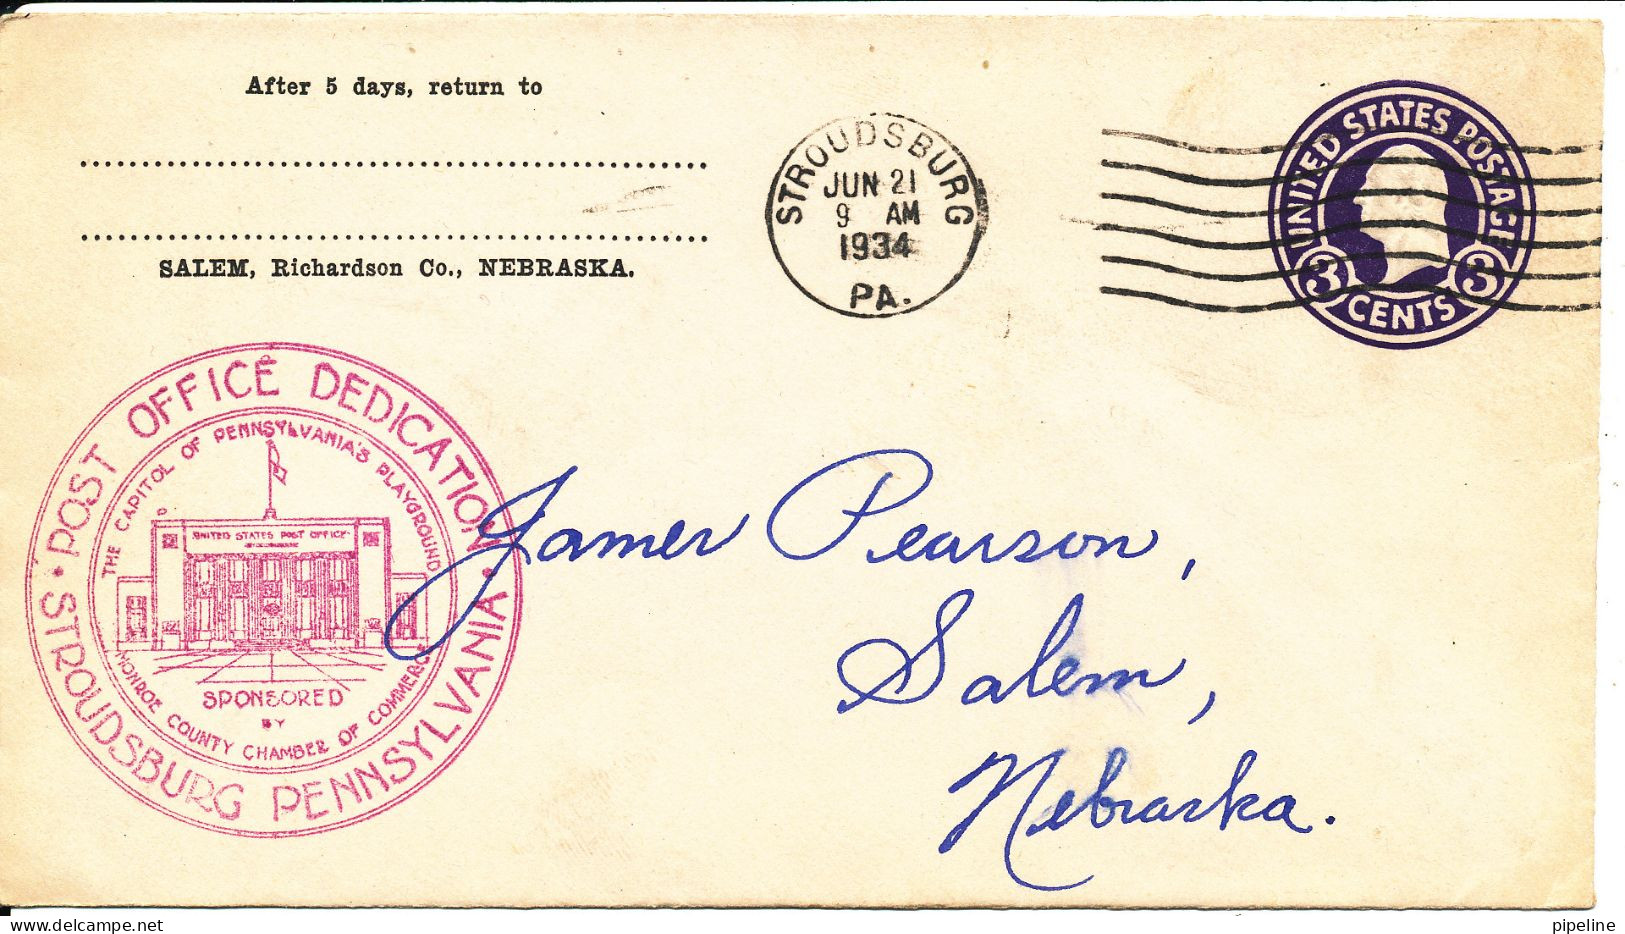 After 5 days, return to
SALEM, Richardson Co., NEBRASKA.
STROUDSBURG
JUN 21
9 AM
1934
PA.
UNITED STATES POSTAGE
3 CENTS 3
POST OFFICE DEDICATION
STROUDSBURG PENNSYLVANIA
THE CAPITOL OF PENNSYLVANIA'S PLAYGROUND
UNITED STATES POST OFFICE
SPONSORED
BY
MONROE COUNTY CHAMBER OF COMMERCE
James Pearson,
Salem,
Nebraska.
© delcampe.net
pipeline